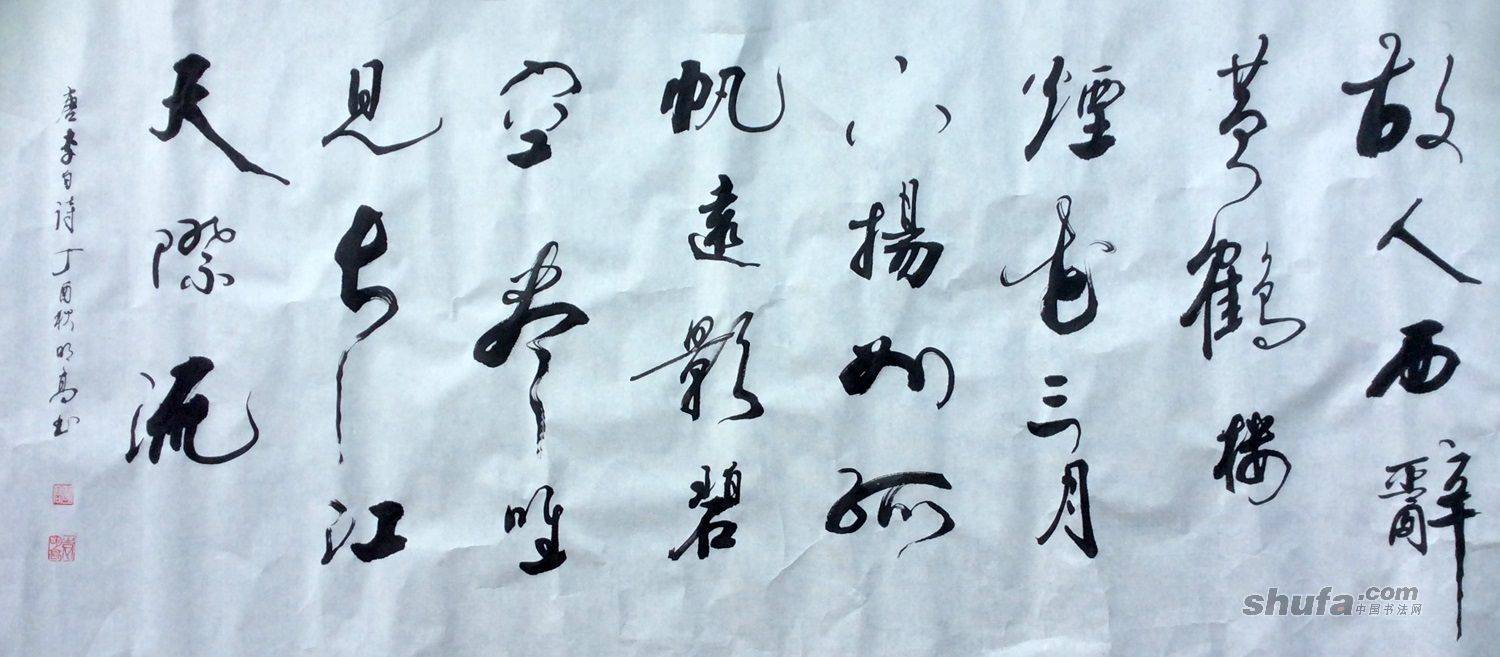 故人西辭
黄鶴楼
煙花三月
下揚州孤
帆遠影碧
空尽唯
見長江
天際流
唐李白詩丁酉秋明高书
shufa.com
中国书法网